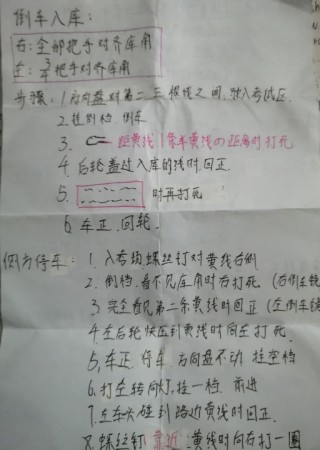 倒车入库:
右:全部把手对齐库角
左:3/4把手对齐库角
步骤:1.方向盘对第二、三根线之间,驶入考试区.
2.挂倒档.倒车
3. 距黄线1条半黄线的距离时打死
4.后轮盖过入库的线时.回正.
5. 时再打死
6.车正.回轮.
侧方停车:1.入考场,螺丝钉对黄线右侧
2.倒档.看不见库角时右打死.(右倒车镜
3.完全看见第二条黄线时回正(左倒车镜
4.左后轮快压到黄线时向左打死.
5.车正.停车.方向盘不动 挂空档
6.打左转向灯,挂一档.前进
7.左车头碰到路边黄线时回正.
8.螺丝钉靠近黄线时向右打一圈